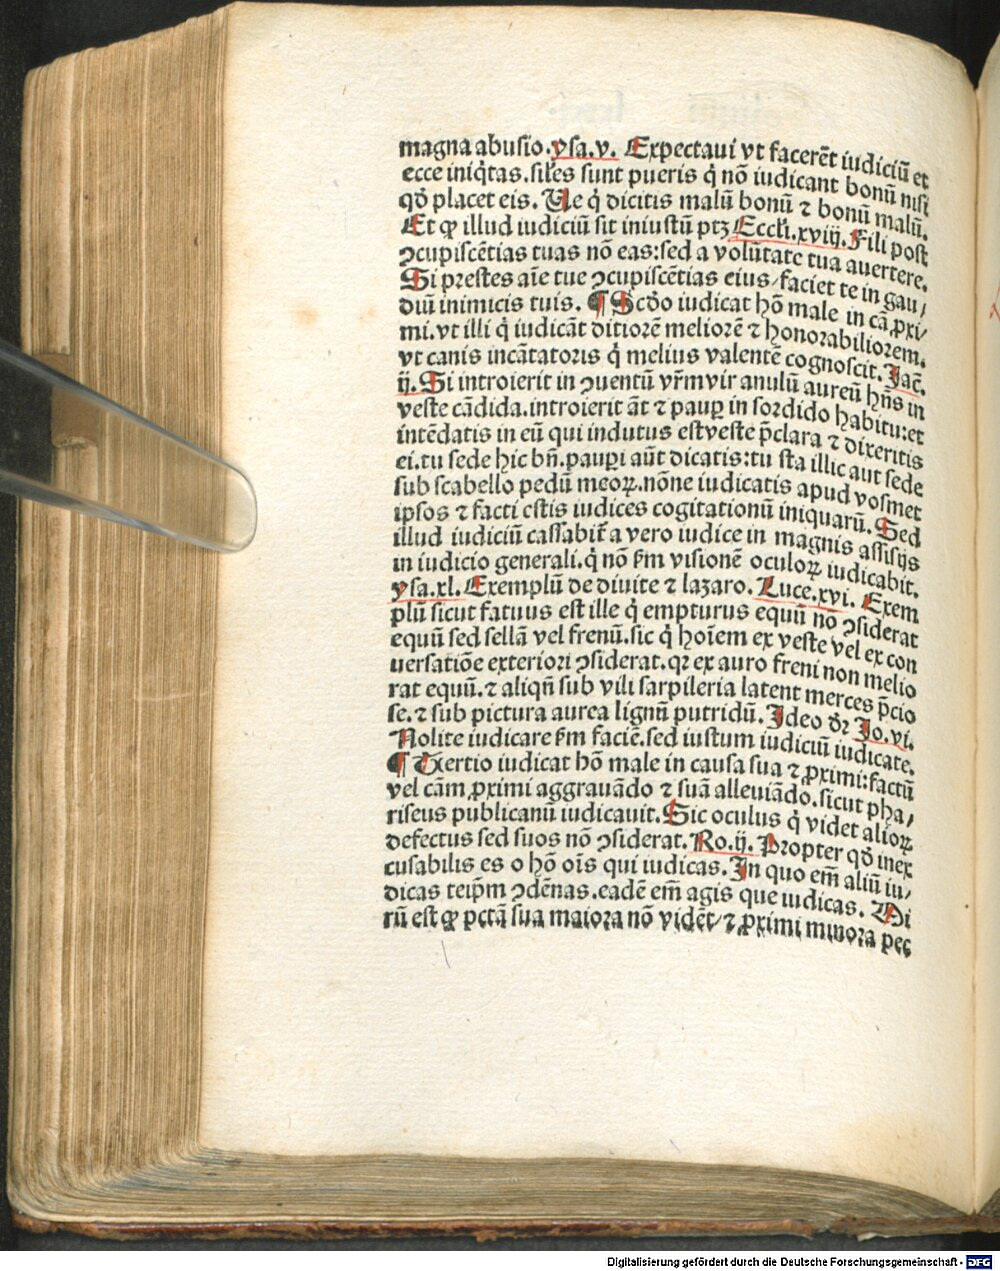 magna abusio. ysa. v. Expectaui vt facerẽt iudiciũ et
ecce iniq̇tas. siles sunt pueris q̇ nõ iudicant bonũ nisi
qđ placet eis. Ue q̇ dicitis malũ bonũ ⁊ bonũ malũ.
Et ꝙ illud iudiciũ sit iniustũ ptꝫ Eccli. xviij. Fili post
ꝯcupiscẽtias tuas nõ eas: sed a volũtate tua auertere.
Si prestes aĩe tue ꝯcupiscẽtias eius/ faciet te in gau/
diũ inimicis tuis. ¶ Scđo iudicat hõ male in cã ꝓxi/
mi. vt illi q̇ iudicãt ditiorẽ meliorẽ ⁊ honorabiliorem.
vt canis incãtatoris q̇ melius valentẽ cognoscit. Jac̃.
ij. Si introierit in ꝯuentũ vr̃m vir anulũ aureũ hñs in
veste cãdida. introierit ãt ⁊ paup̲ in sordido habitu: et
intẽdatis in eũ qui indutus est veste p̃clara ⁊ dixeritis
ei. tu sede hic bñ. paup̲i aũt dicatis: tu sta illic aut sede
sub scabello pedũ meoꝝ. nõne iudicatis apud vosmet
ipsos ⁊ facti estis iudices cogitationũ iniquarũ. Sed
illud iudiciũ cassabit̃ a vero iudice in magnis assisijs
in iudicio generali. q̇ nõ ẜm visionẽ oculoꝝ iudicabit.
ysa. xl. Exemplũ de diuite ⁊ lazaro. Luce. xvi. Exem
plũ sicut fatuus est ille q̇ empturus equũ nõ ꝯsiderat
equũ sed sellã vel frenũ. sic q̇ hoĩem ex veste vel ex con
uersatiõe exteriori ꝯsiderat. qꝛ ex auro freni non melio
rat equũ. ⁊ aliqñ sub vili sarpileria latent merces p̃cio
se. ⁊ sub pictura aurea lignũ putridũ. Ideo dr̃ Jo. vi.
Nolite iudicare ẜm faciẽ. sed iustum iudiciũ iudicate.
¶ Tertio iudicat hõ male in causa sua ⁊ ꝓximi: factũ
vel cãm ꝓximi aggrauãdo ⁊ suã alleuiãdo. sicut pha/
riseus publicanũ iudicauit. Sic oculus q̇ videt alioꝝ
defectus sed suos nõ ꝯsiderat. Ro. ij. Propter qđ inex
cusabilis es o hõ oĩs qui iudicas. In quo em̃ aliũ iu/
dicas teip̃m ꝯdẽnas. eadẽ em̃ agis que iudicas. Mi
rũ est ꝙ pctã sua maiora nõ vidẽt/ ⁊ ꝓximi minora pec
Digitalisierung gefördert durch die Deutsche Forschungsgemeinschaft - DFG